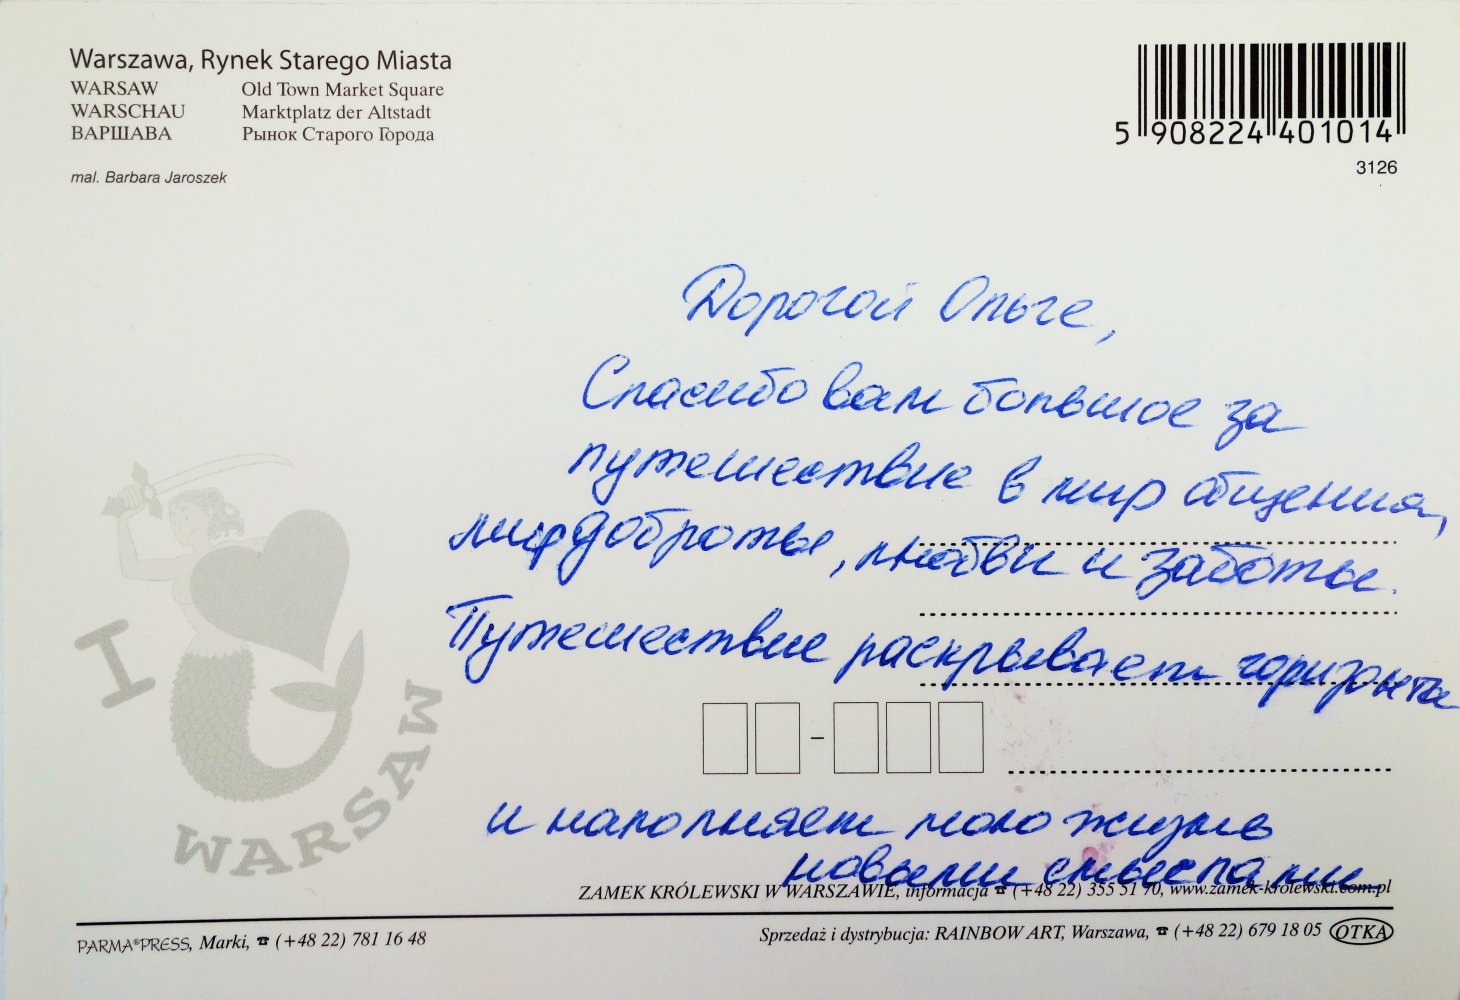 Warszawa, Rynek Starego Miasta
WARSAW Old Town Market Square
WARSCHAU Marktplatz der Altstadt
ВАРШАВА Рынок Старого Города
mal. Barbara Jaroszek
5 908224 401014
3126
Дорогой Ольге,
Спасибо вам большое за
путешествие в мир общения,
мир доброты, любви и заботы.
Путешествие раскрывает горизонты
и наполняет мою жизнь
новыми смыслами
I
WARSAW
ZAMEK KRÓLEWSKI W WARSZAWIE, informacja ☎ (+48 22) 355 51 70, www.zamek-krolewski.com.pl
PARMA®PRESS, Marki, ☎ (+48 22) 781 16 48
Sprzedaż i dystrybucja: RAINBOW ART, Warszawa, ☎ (+48 22) 679 18 05 OTKA